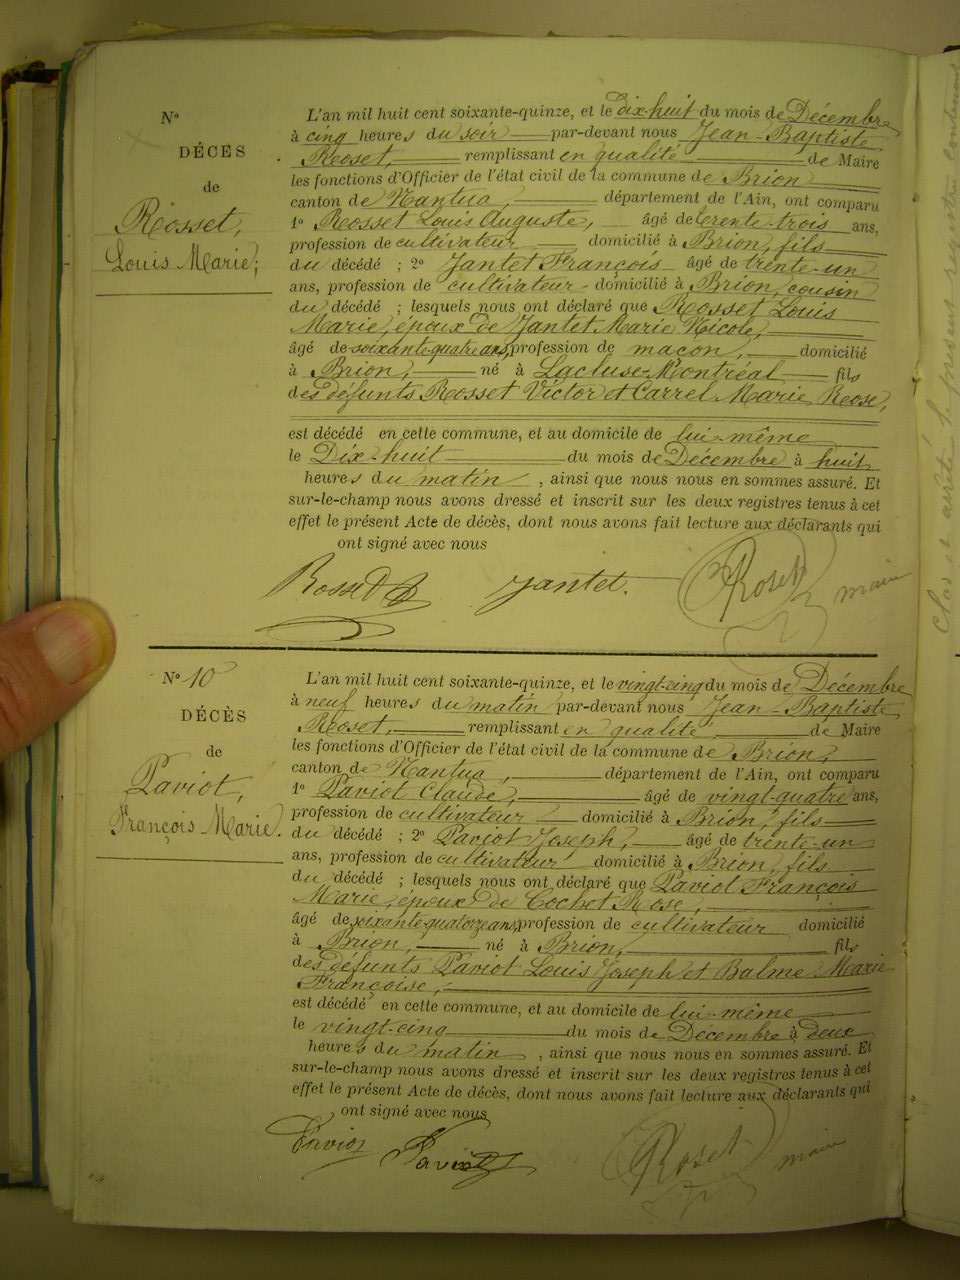 N°
DÉCÈS
de
Rosset,
Louis Marie;
L'an mil huit cent soixante-quinze, et le dix-huit du mois de Décembre
à cinq heures du soir par-devant nous Jean-Baptiste
Roset, remplissant en qualité de Maire
les fonctions d'Officier de l'état civil de la commune de Brion
canton de Nantua, département de l'Ain, ont comparu
1° Rosset Louis Auguste, âgé de trente-trois ans,
profession de cultivateur domicilié à Brion, fils
du décédé ; 2° Jantet François âgé de trente-un
ans, profession de cultivateur domicilié à Brion, cousin
du décédé ; lesquels nous ont déclaré que Rosset Louis
Marie, époux de Jantet Marie Nicole,
âgé de soixante-quatre ans, profession de maçon, domicilié
à Brion, né à Lacluse-Montréal fils
des défunts Rosset Victor et Carrel Marie Rose,
est décédé en cette commune, et au domicile de lui-même
le Dix-huit du mois de Décembre à huit
heures du matin, ainsi que nous nous en sommes assuré. Et
sur-le-champ nous avons dressé et inscrit sur les deux registres tenus à cet
effet le présent Acte de décès, dont nous avons fait lecture aux déclarants qui
ont signé avec nous
Rosset Jantet. Roset maire
N° 10
DÉCÈS
de
Paviot,
François Marie.
L'an mil huit cent soixante-quinze, et le vingt-cinq du mois de Décembre
à neuf heures du matin par-devant nous Jean-Baptiste
Roset, remplissant en qualité de Maire
les fonctions d'Officier de l'état civil de la commune de Brion,
canton de Nantua, département de l'Ain, ont comparu
1° Paviot Claude, âgé de vingt-quatre ans,
profession de cultivateur domicilié à Brion, fils
du décédé ; 2° Paviot Joseph, âgé de trente-un
ans, profession de cultivateur domicilié à Brion, fils
du décédé ; lesquels nous ont déclaré que Paviot François
Marie, époux de Cochet Rose,
âgé de soixante-quatorze ans, profession de cultivateur domicilié
à Brion, né à Brion, fils
des défunts Paviot Louis Joseph et Balme Marie
Françoise,
est décédé en cette commune, et au domicile de lui-même
le vingt-cinq du mois de Décembre à deux
heures du matin, ainsi que nous nous en sommes assuré. Et
sur-le-champ nous avons dressé et inscrit sur les deux registres tenus à cet
effet le présent Acte de décès, dont nous avons fait lecture aux déclarants qui
ont signé avec nous
Paviot Paviot Roset maire
Clos et arrêté le présent registre contenant